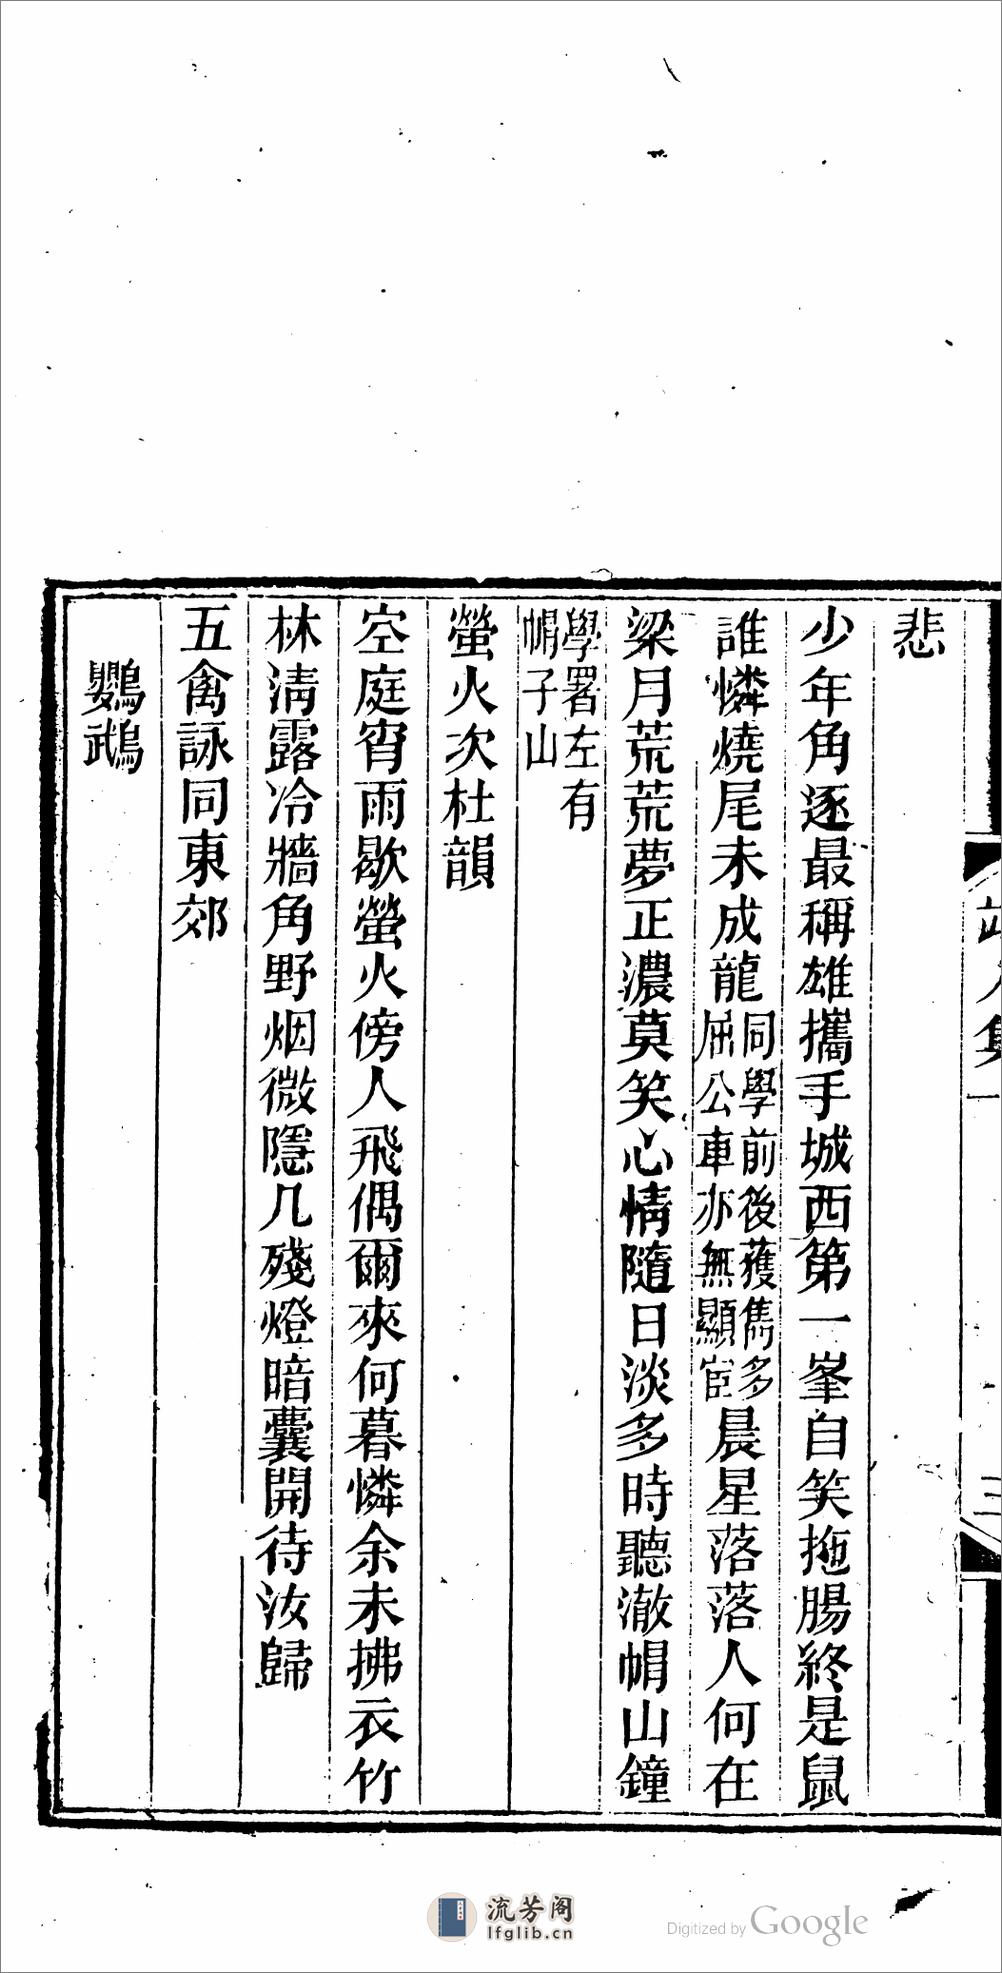 悲
少年角逐最稱雄攜手城西第一峯自笑拖腸終是鼠
誰憐燒尾未成龍同學前後獲雋多屈公車亦無顯宦晨星落落人何在
梁月荒荒夢正濃莫笑心情隨日淡多時聽澈帽山鐘
學署左有
帽子山
螢火次杜韻
空庭宵雨歇螢火傍人飛偶爾來何暮憐余未拂衣竹
林清露冷牆角野烟微隱几殘燈暗囊開待汝歸
五禽詠同東郊
鸚鵡
流芳阁
lfglib.cn
Digitized by Google